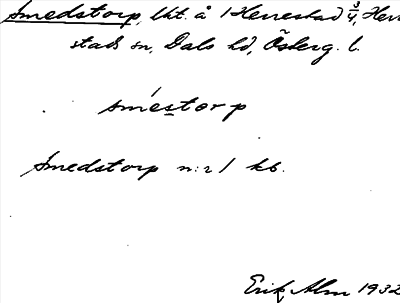 Smedstorp, lht. å 1 Herrestad 3/4, Herr
stads sn, Dals hd, Österg. l.
sméstorp
Smedstorp n:r 1 kb.
Erik Alm 1932